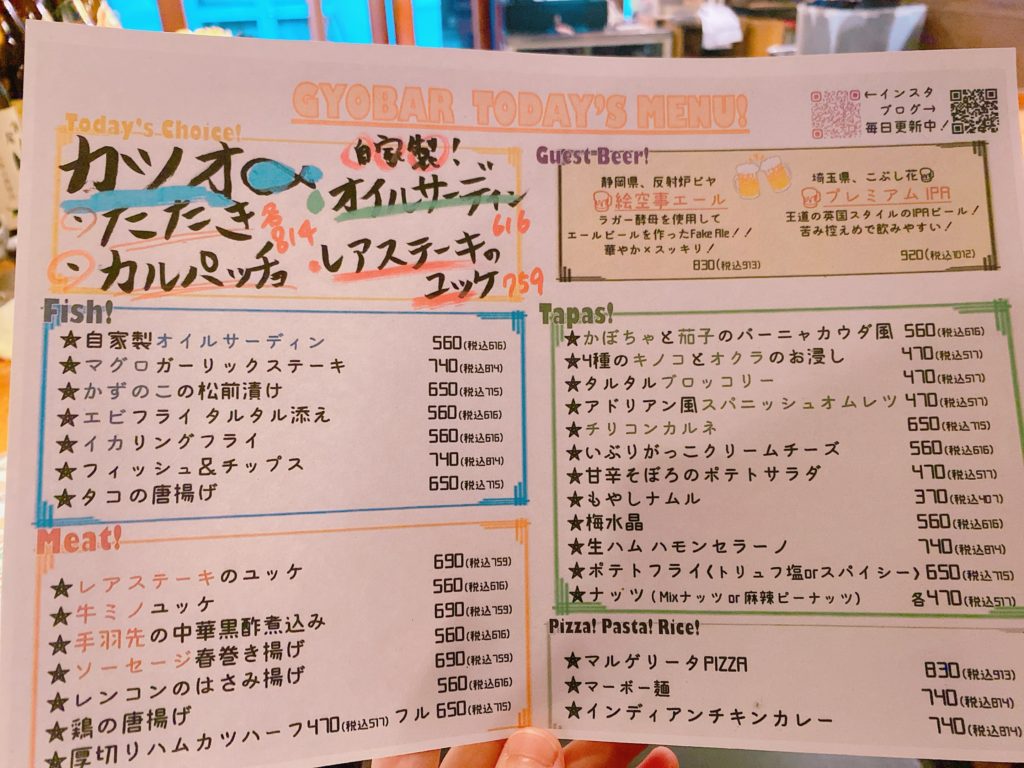 GYOBAR TODAY'S MENU!
←インスタ
ブログ→
毎日更新中！
Today's Choice!
カツオ
・たたき
・カルパッチョ
各814
自家製！
オイルサーディン
616
・レアステーキの
ユッケ 759
Guest Beer!
静岡県、反射炉ビヤ
絵空事エール
ラガー酵母を使用して
エールビールを作ったFake Ale！！
華やか×スッキリ！
830(税込913)
埼玉県、こぶし花
プレミアムIPA
王道の英国スタイルのIPAビール！
苦み控えめで飲みやすい！
920(税込1012)
Fish!
★自家製オイルサーディン 560(税込616)
★マグロガーリックステーキ 740(税込814)
★かずのこの松前漬け 650(税込715)
★エビフライ タルタル添え 560(税込616)
★イカリングフライ 560(税込616)
★フィッシュ&チップス 740(税込814)
★タコの唐揚げ 650(税込715)
Meat!
★レアステーキのユッケ 690(税込759)
★牛ミノユッケ 560(税込616)
★手羽先の中華黒酢煮込み 690(税込759)
★ソーセージ春巻き揚げ 560(税込616)
★レンコンのはさみ揚げ 690(税込759)
★鶏の唐揚げ 560(税込616)
★厚切りハムカツハーフ470(税込517) フル 650(税込715)
Tapas!
★かぼちゃと茄子のバーニャカウダ風 560(税込616)
★4種のキノコとオクラのお浸し 470(税込517)
★タルタルブロッコリー 470(税込517)
★アドリアン風スパニッシュオムレツ 470(税込517)
★チリコンカルネ 650(税込715)
★いぶりがっこクリームチーズ 560(税込616)
★甘辛そぼろのポテトサラダ 470(税込517)
★もやしナムル 370(税込407)
★梅水晶 560(税込616)
★生ハム ハモンセラーノ 740(税込814)
★ポテトフライ(トリュフ塩orスパイシー) 650(税込715)
★ナッツ(Mixナッツ or 麻辣ピーナッツ) 各470(税込517)
Pizza! Pasta! Rice!
★マルゲリータPIZZA 830(税込913)
★マーボー麺 740(税込814)
★インディアンチキンカレー 740(税込814)